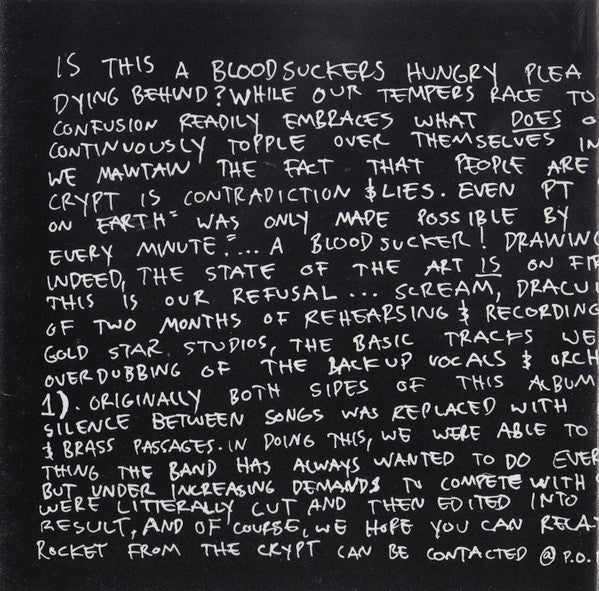 IS THIS A BLOODSUCKERS HUNGRY PLEA
DYING BEHIND? WHILE OUR TEMPERS RACE TO
CONFUSION READILY EMBRACES WHAT DOES O
CONTINUOUSLY TOPPLE OVER THEMSELVES IN
WE MAINTAIN THE FACT THAT PEOPLE ARE
CRYPT IS CONTRADICTION & LIES. EVEN PT
ON EARTH" WAS ONLY MADE POSSIBLE BY
EVERY MINUTE."... A BLOODSUCKER! DRAWING
INDEED, THE STATE OF THE ART IS ON FIR
THIS IS OUR REFUSAL... SCREAM, DRACU
OF TWO MONTHS OF REHEARSING & RECORDING
GOLD STAR STUDIOS, THE BASIC TRACKS WE
OVERDUBBING OF THE BACKUP VOCALS & ORCH
1). ORIGINALLY BOTH SIDES OF THIS ALBUM
SILENCE BETWEEN SONGS WAS REPLACED WITH
& BRASS PASSAGES. IN DOING THIS, WE WERE ABLE TO
THING THE BAND HAS ALWAYS WANTED TO DO EVER
BUT UNDER INCREASING DEMANDS TO COMPETE WITH
WERE LITTERALLY CUT AND THEN EDITED INTO
RESULT, AND OF COURSE, WE HOPE YOU CAN RELA
ROCKET FROM THE CRYPT CAN BE CONTACTED @ P.O.